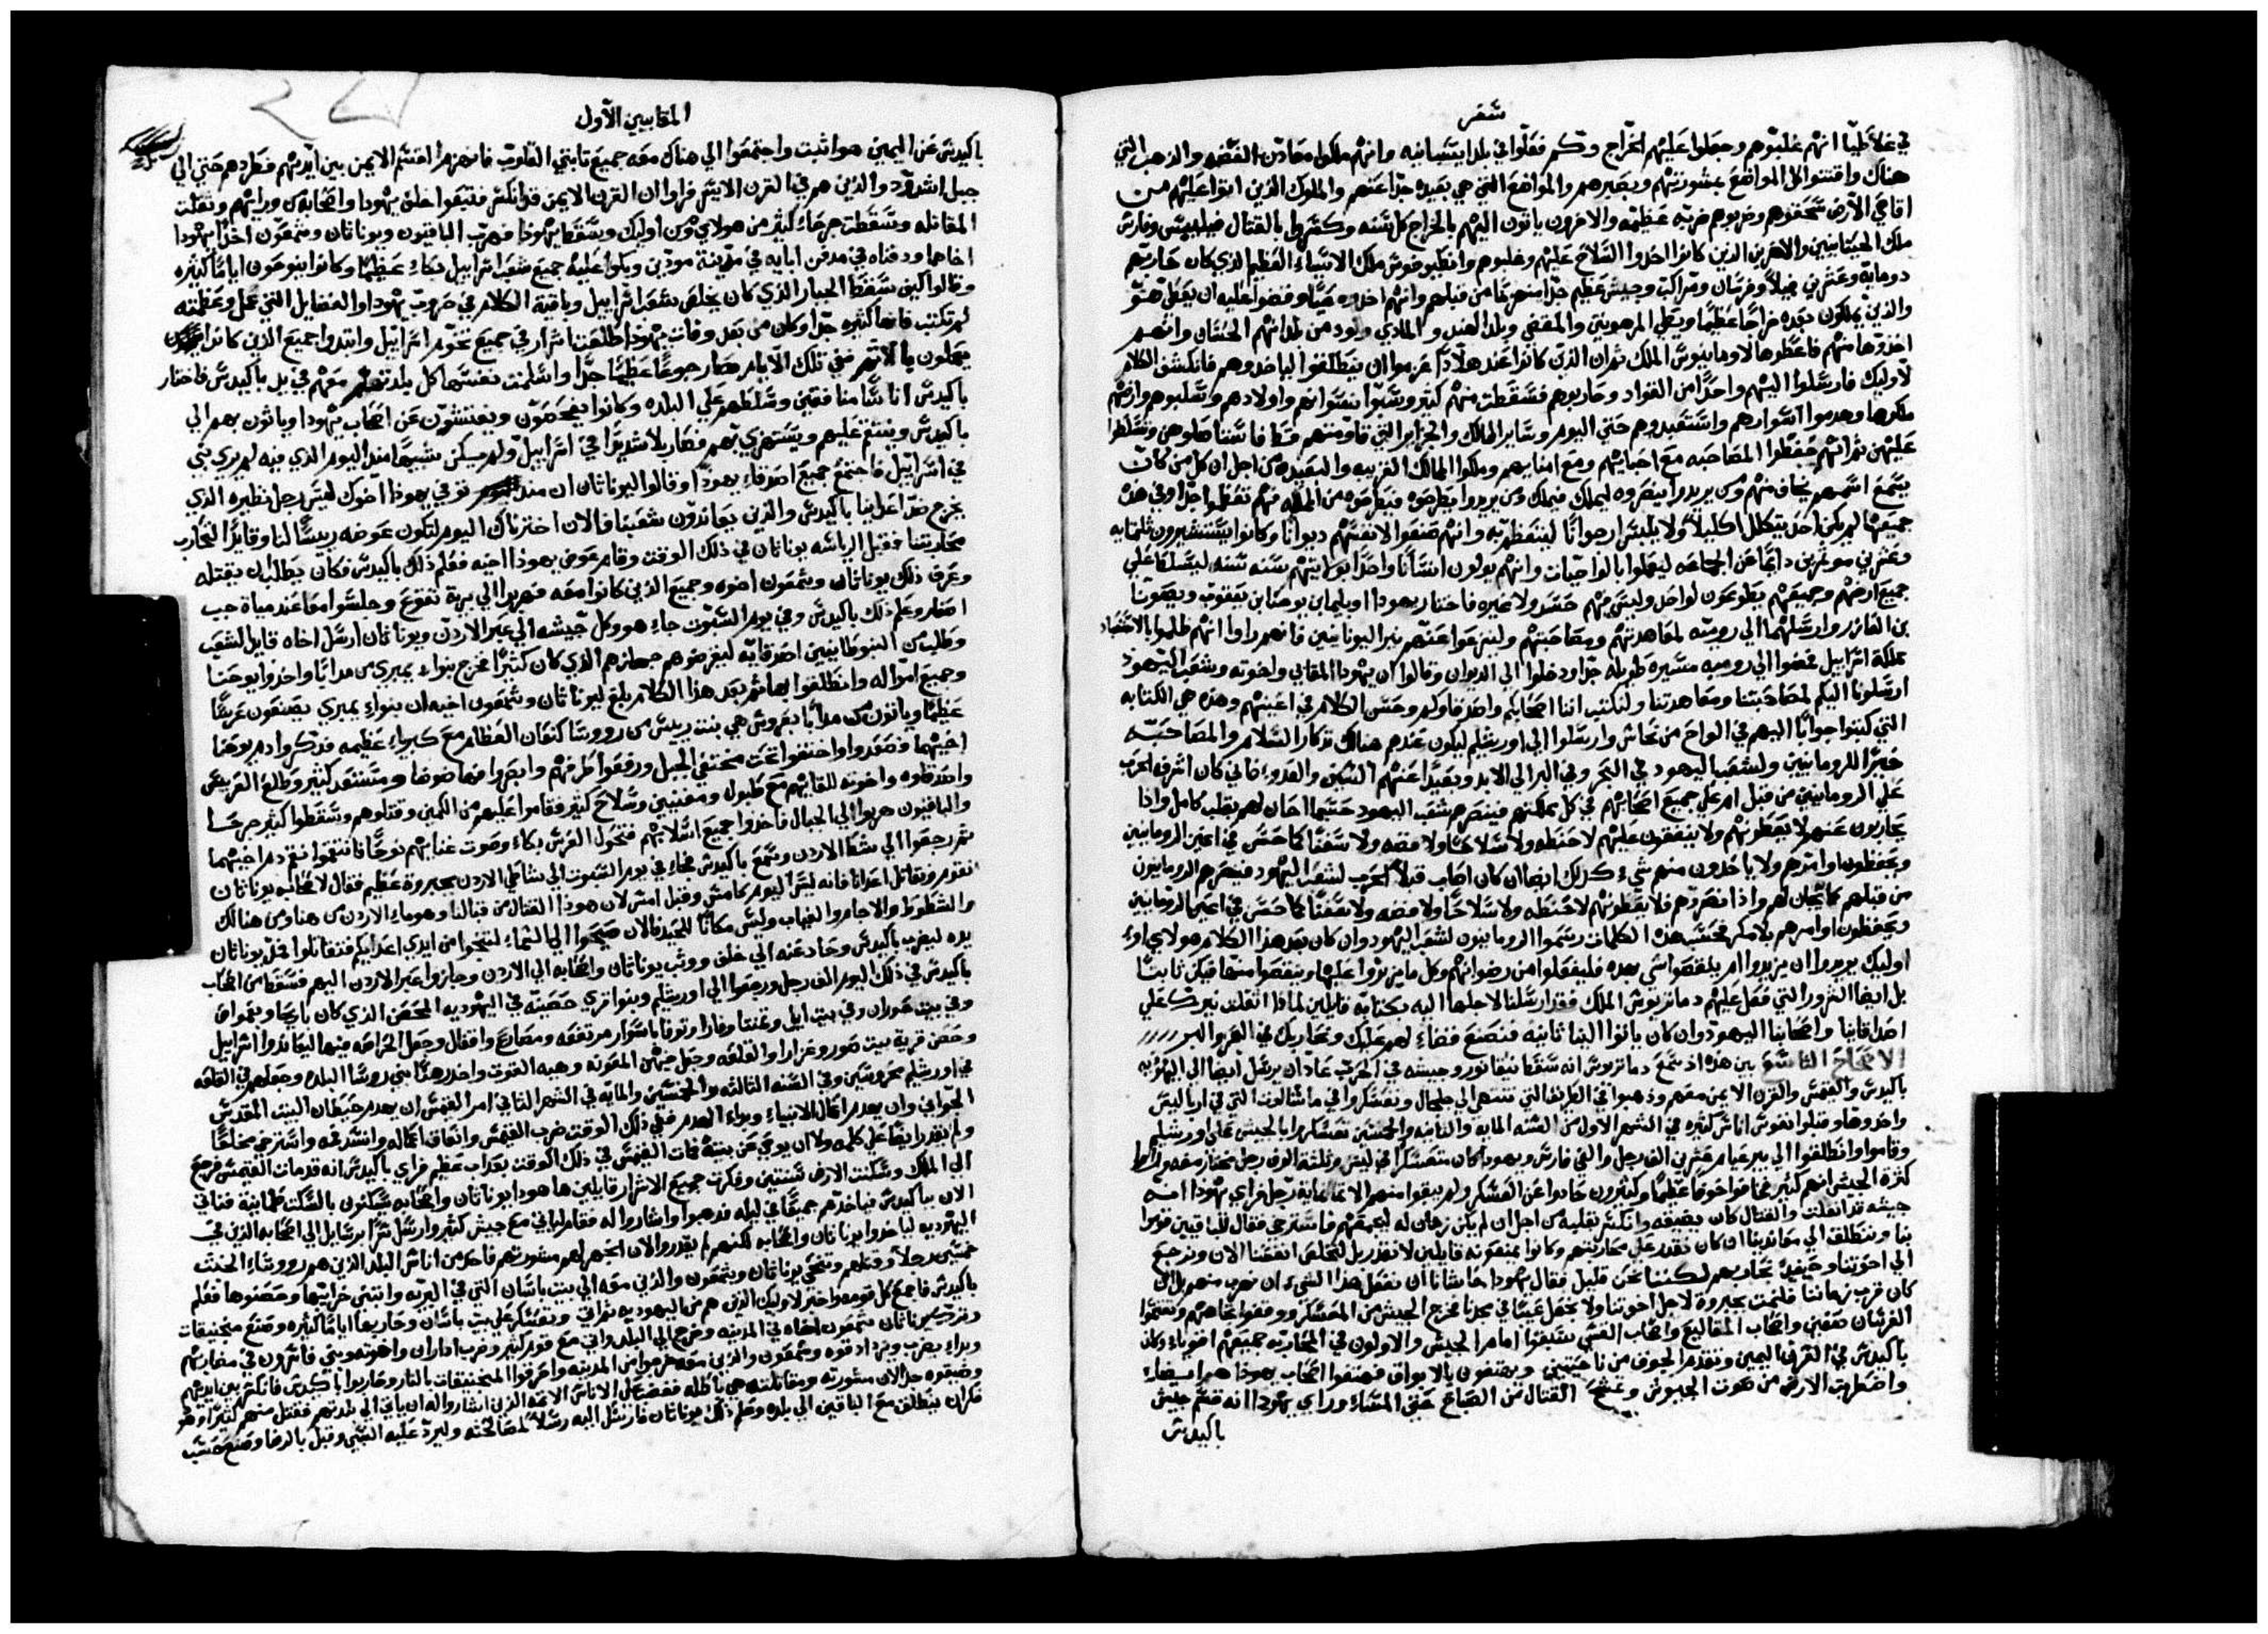 سفر
في غلاطيا انهم غلبوهم وجعلوا عليهم الخراج وكم فعلوا في بلد اسبانيه وانهم ملكوا معادن الفضه والذهب التي
هناك واقتنوا كل المواضع بمشورتهم وبصبرهم والمواضع التي هي بعيده جدا عنهم والملوك الذين اتوا عليهم من
اقاصي الارض سحقوهم وضربوهم ضربه عظيمه والاخرون ياتون اليهم بالخراج كل سنه وكسروا بالقتال فيلبس وفارس
ملك الحيتانيين والاخرين الذين كانوا اخذوا السلاح عليهم وغلبوهم وانطيوخوس ملك الاسياء العظيم الذي كان حاربهم
ومايه وعشرين فيلا وفرسان ومراكب وجيش عظيم جدا منهزما من قبلهم وانهم اخذوه حيا وفرضوا عليه ان يعطي هو
والذين يملكون بعده خراجا عظيما ويعطي المرهونين والمقضي وبلد الهند والمادي ولود من بلدانهم الحسان وانهم
اخذوها منهم فاعطوها لاومانيوس الملك ثم ان الذين كانوا عند هلادا عزموا ان ينطلقوا لياخذوهم فانكشف الكلام
لاوليك فارسلوا اليهم واحدا من القواد وحاربوهم فسقطت منهم كثير وسبوا نسوانهم واولادهم وسلبوهم وارضهم
ملكوها وهدموا اسوارهم واستعبدوهم حتي اليوم وساير الممالك والجزاير التي قاومتهم قط فاستاصلوهن وتسلطوا
عليهن ثم انهم حفظوا المصاحبه مع احبايهم ومع امنايهم وملكوا الممالك القريبه والبعيده من اجل ان كل من كان
يسمع اسمهم يخاف منهم ومن يريدوا ينصروه ليملك فيملك ومن يريدوا يطرحوه فيطرحوه من الملك فهم تعظموا جدا وفي هذه
جميعها لم يكن احد يتكلل اكليلا ولا يلبس ارجوانا ليتعظم به وانهم صنعوا لانفسهم ديوانا وكانوا يستشيرون ثلثمايه
وعشرين موعزين دايما عن الجماعه ليعملوا بالواجبات وانهم يولون انسانا واحدا رياستهم سنه سنه ليتسلط علي
جميع ارضهم وجميعهم يطيعون لواحد وليس بينهم حسد ولا غيره فاختار يهودا اوبليمان يوحنا ابن يعقوب ويصونا
بن العازر وارسلهما الي روميه لمعاهدتهم ومصاحبتهم ولينزعوا عنهم نير اليونانيين فانهم راوا انهم ظلموا بالاستعباد
مملكة اسراييل فمضوا الي روميه مسيرة طويله جدا ودخلوا الي الديوان وقالوا ان يهودا المقابي واخوته وشعب اليهود
ارسلونا اليكم لمصاحبتنا ومعاهدتنا ولنكتب اننا اصحابكم واصدقاوكم وحسن الكلام في اعينهم وهذه هي الكتابه
التي كتبوا جوابا اليهم في الواح من نحاس وارسلوا الي اورشليم ليكون عندهم هناك تذكار السلام والمصاحبه
خيرا للرومانيين ولشعب اليهود في البحر وفي البر الي الابد وبعيدا عنهم السيف والعدو فاني كان اشرف الحرب
علي الرومانيين من قبل ام علي جميع اصحابهم في كل مملكتهم فينصرهم شعب اليهود حسبما احان لهم بقلب كامل واذا
يحاربون عنهم لا يعطوهم ولا ينفقون عليهم لا حنطه ولا سلاحا ولا فضه ولا سفنا كما حسن في اعين الرومانيين
ويحفظون اوامرهم ولا ياخذون منهم شي كذلك ايضا ان كان اصاب قبلا الحرب لشعب اليهود فينصرهم الرومانيون
من قبلهم كما يحان لهم واذا نصروهم فلا يعطونهم لا حنطه ولا سلاحا ولا فضه ولا سفنا كما حسن في اعين الرومانيين
ويحفظون اوامرهم بلا مكر فحسب هذه الكلمات رسموا الرومانيون لشعب اليهود وان كان بعد هذا الكلام هولاي او
اوليك يريدوا ان يزيدوا ام ينقصوا شي بعده فليفعلوا من رضوانهم وكل ما يزيدوا عليها وينقصوا منها فيكن ثابتا
بل ايضا الشرور التي فعل عليهم دماتريوس الملك فقد ارسلنا لاجلها اليه بكتابه قايلين لماذا اثقلت نيرك علي
اصدقاينا واصحابنا اليهود وان كان ياتوا الينا ثانيه فنصنع قضاء لهم عليك ونحاربك في البحر والبر
الاصحاح التاسع بين هذه اذ سمع دماتريوس انه سقط نيقانور وجيشه في الحرب عاد ان يرسل ايضا الي اليهوديه
باكيدس والقيمس والقرن الايمن معهم وذهبوا في الطريق التي تنتهي الي جلجال وعسكروا في ماسالوت التي في اربل
واخذوها وقتلوا نفوس اناس كثيره في الشهر الاول من السنه المايه والثانيه والخمسين عسكروا بالجيش علي اورشليم
وقاموا وانطلقوا الي بير عشرين الف رجل والفي فارس ويهودا كان متعسكرا في ليس وثلثة الوف رجل مختار معه وراوا
كثرة الجيش انهم كثير فخافوا خوفا عظيما وكثيرون حادوا عن العسكر ولم يبقوا منهم الا ثمانماية رجل فراي يهودا ان
جيشه قد انفلت والقتال كان يضيقه وانكسر بقلبه من اجل ان لم يكن زمان له ليجمعهم فاسترخي فقال للباقيين قوموا
بنا وننطلق الي معاندينا ان كان نقدر علي محاربتهم وكانوا يمنعونه قايلين لا نقدر بل لنخلص انفسنا الان ونرجع
الي اخوتنا وحينيذ نحاربهم لكننا نحن قليل فقال يهودا حاشانا ان نفعل هذا الشي ان نهرب منهم بل ان
كان قرب زماننا فلنمت بجبروة لاجل اخوتنا ولا نجعل عيبا في مجدنا فخرج الجيش من المعسكر ووقفوا تجاههم وتقسموا
الفرسان صفين واصحاب المقاليع واصحاب القسي سبقوا امام الجيش والاولون في المحاربه جميعهم اقوياء وكان
باكيدس في القرن اليمين وتقدم الجوف من ناحيتين ويهتفون بالابواق فهتفوا اصحاب يهودا هم ايضا
واضطربت الارض من صوت الجيوش واشتبك القتال من الصباح حتي المساء وراي يهودا انه قسم جيش
باكيدس
المقابيين الاول
باكيدس عن اليمين هو اثبت واجتمعوا الي هناك معه جميع ثابتي القلوب فانهزم القسم الايمن بين ايديهم فطردهم حتي الي
جبل اشدود والذين هم في القرن الايسر فراوا ان القرن الايمن قد انكسر فتبعوا خلف يهودا واصحابه من ورائهم وثقلت
المقاتله وسقطت جرحاء كثير من هولاي ومن اوليك وسقط يهودا فهرب الباقيون ويوناتان وشمعون اخذا يهودا
اخاهما ودفناه في مدفن ابايه في مدينة مودين وبكوا عليه جميع شعب اسراييل بكاء عظيما وكانوا ينوحون اياما كثيره
وقالوا كيف سقط الجبار الذي كان يخلص شعب اسراييل وباقية الكلام في حروب يهودا والفضايل التي عمل وعظمته
لم تكتب فانها كثيره جدا وكان من بعد وفات يهودا طلعت اشرار في جميع تخوم اسراييل وابتدوا جميع الذين كانوا
يعملون بالاثم في تلك الايام وصار جوعا عظيما جدا واسلمت نفسها كل بلدتهم معهم في يد باكيدس فاختار
باكيدس اناسا منافقين وسلطهم علي البلده وكانوا يفحصون ويفتشون عن اصحاب يهودا وياتون بهم الي
باكيدس وينتقم عليهم ويستهزي بهم فصار بلا شديدا في اسراييل ولم يكن شبهها منذ اليوم الذي فيه لم يري نبي
في اسراييل فاجتمع جميع اصدقاء يهودا وقالوا ليوناتان ان منذ توفي يهودا اخوك ليس رجل نظيره الذي
يخرج ضد اعداينا باكيدس والذين يعاندون شعبنا فالان اخترناك اليوم لتكون عوضه رييسا لنا وقايدا لتحارب
محاربتنا فقبل الرياسه يوناتان في ذلك الوقت وقام عوض يهودا اخيه فعلم ذلك باكيدس فكان يطلب ان يقتله
وعرف ذلك يوناتان وشمعون اخوه وجميع الذين كانوا معه فهربوا الي برية تقوع وجلسوا معا عند مياة جب
اصفار وعلم ذلك باكيدس وفي يوم السبوت جاء هو وكل جيشه الي عبر الاردن ويوناتان ارسل اخاه قايد الشعب
وطلب من النبوطانيين اصدقايه ليقرضوهم جهازهم الذي كان كثيرا فخرج بنواء يمبري من مدابا واخذوا يوحنا
وجميع امواله وانطلقوا بها ثم بعد هذا الكلام بلغ ليوناتان وشمعون اخيه ان بنواء يمبري يصنعون عرسا
عظيما وياتون من مدابا بعروس هي بنت رييس من روسا كنعان العظام مع كبرياء عظيمه فذكروا دم يوحنا
اخيهما فصعدوا واختفوا تحت مختفي الجبل ورفعوا طرفهم وابصروا فها ضوضا ومستعد كثير وطلع العريس
واصدقاوه واخوته للقايهم مع طبول ومغنيين وسلاح كثير فقاموا عليهم من الكمين وقتلوهم وسقطوا كثير جرحا
والباقيون هربوا الي الجبال فاخذوا جميع اسلابهم فتحول العرس بكاء وصوت غنايهم نوحا فانتقموا نقم دم اخيهما
ثم رجعوا الي شط الاردن وسمع باكيدس فجاء في يوم السبوت الي شاطي الاردن بجبروة عظيم فقال لاصحابه يوناتان
نقوم ونقاتل اعدانا فانه ليس اليوم كامس وقبل امس لان هوذا القتال من قبالنا وهوماء الاردن من هنا ومن هنالك
والشطوط والاجام والغياب وليس مكانا للحيد فالان صيحوا الي السماء لتنجوا من ايدي اعدايكم فتقاتلوا فمد يوناتان
يده ليضرب باكيدس وحاد عنه الي خلف ووثب يوناتان واصحابه الي الاردن وجازوا عبر الاردن اليهم فسقط من اصحاب
باكيدس في ذلك اليوم الف رجل ورجعوا الي اورشليم وبنوا قري حصينه في اليهوديه الحصن الذي كان باريحا وعمواق
وفي بيت حوران وفي بيت ايل وتمنتا وفارا وتوفا باسوار مرتفعه ومصارع واقفال وجعل الحراسه فيها ليعاندوا اسراييل
وحصن قرية بيت صور وغزارا والقلعه وجعل فيهن المعونه وهيه القوت واخذ رهنا بني روسا البلده وجعلهم في القلعه
في اورشليم محروسين وفي السنه الثالثه والخمسين والمايه في الشهر الثاني امر القيمس ان يهدم حيطان البيت المقدس
الجواني وان يهدم اعمال الانبياء وبداء الهدم ففي ذلك الوقت ضرب القيمس واتعاق اعماله وانسد فمه واسترخي مخلعا
ولم يقدر ايضا علي كلمه ولا ان يوصي عن بيته فمات القيمس في ذلك الوقت بعذاب عظيم فراي باكيدس انه قد مات القيمس فرجع
الي الملك وسكنت الارض سنتين وفكرت جميع الاشرار قايلين ها هوذا يوناتان واصحابه يسكنون بالسكت طمانينة فناتي
الان بباكيدس فياخذهم جميعا في ليله فذهبوا واشاروا له فقام لياتي مع جيش كثير وارسل سرا رسايل الي اصحابه الذين في
اليهوديه لياخذوا يوناتان واصحابه لكنهم لم يقدروا لان اشتهر لهم مشورتهم فاخذ من اناس البلد الذين هم رووساء الخبث
خمسين رجلا وقتلهم وتنحي يوناتان وشمعون والذين معه الي بيت باسان التي في البريه وابتني خرابتها وحصنوها فعلم
باكيدس فاجمع كل قومه واخبر لاوليك الذين هم من اليهوديه ثم اتي وعسكر علي بيت باسان وحاربها اياما كثيره وصنع منجنيقات
وترك يوناتان شمعون اخاه في المدينه وخرج الي البلد واتي مع قوم كثير وضرب اداران واخوته وبني فاسرون في مضاربهم
وبداء يضرب ويزداد قوه وشمعون والذين معه خرجوا من المدينه واحرقوا المنجنيقات بالنار وحاربوا باكيدس فانكسر بين ايديهم
وضيقوه جدا لان مشورته ومقاتلته هي باطله فغضب علي الاناس الاثمه الذين اشاروا له ان ياتي الي بلدتهم فقتل منهم كثيرا وهو
فكر ان ينطلق مع الباقين الي بلده وعلم ذلك يوناتان فارسل اليه رسلا لمصالحته وليرد عليه السبي وقبل بالرضا وصنع حسب